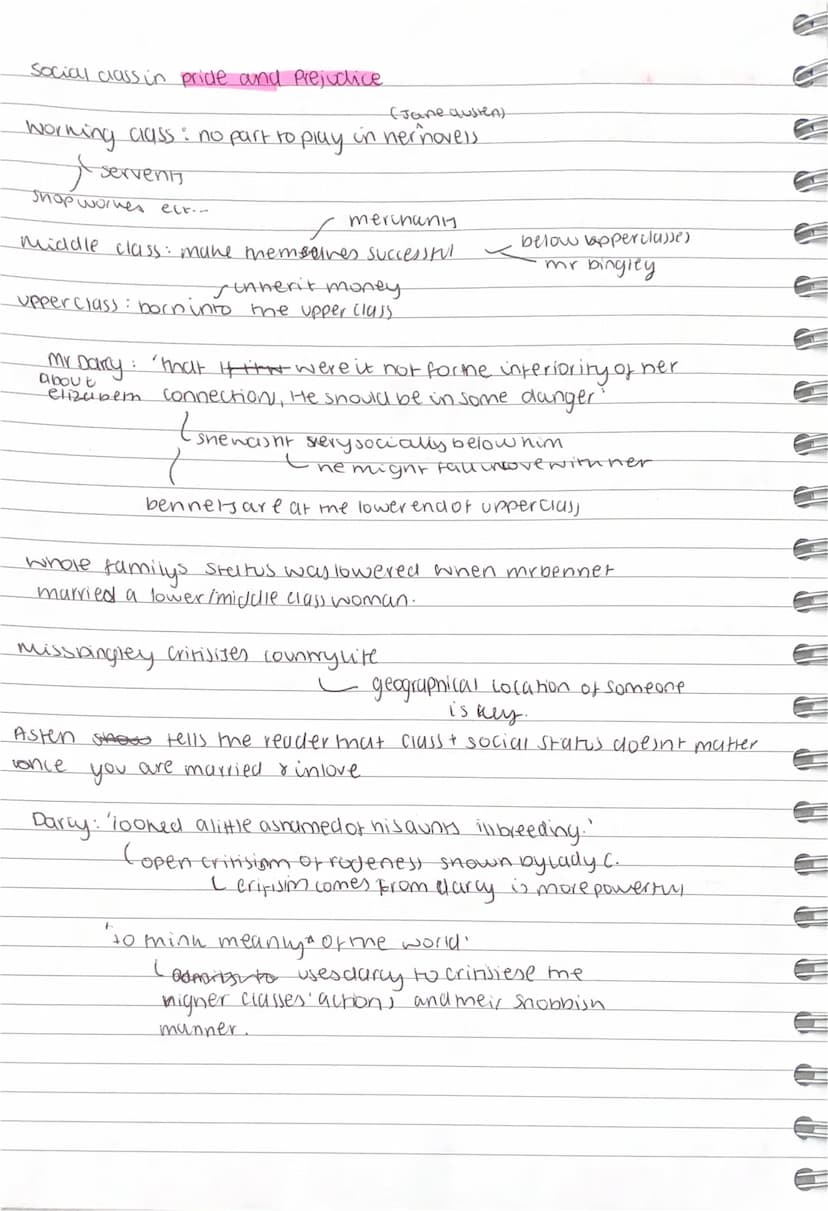 Social class in pride and Prejudice
(Jane austen)
Working class: no part to play in her ^ novels
servents
shop workes etc...
merchants
Middle class: make themselves successful
below upperclasses
mr bingley
inherit money
upper class: born into the upper class
Mr Darcy: 'that were it not for the inferiority of her
about
elizabeth connection, He should be in some danger'
she wasnt very socially below him
he might fall in love with her
bennets are at the lower end of upper class
whole familys status was lowered when mr bennet
married a lower/middle class woman.
Miss bingley critisises country life
geographical location of someone
is key.
Asten tells the reader that class + social status doesnt matter
once you are married & in love
Darcy: 'looked a little ashamed of his aunts illbreeding.'
open critisism of rudeness shown by lady C.
critisism comes from darcy is more powerful
'to think meanly of the world'
uses darcy to critisiese the
higher classes' actions and their snobbish
manner.